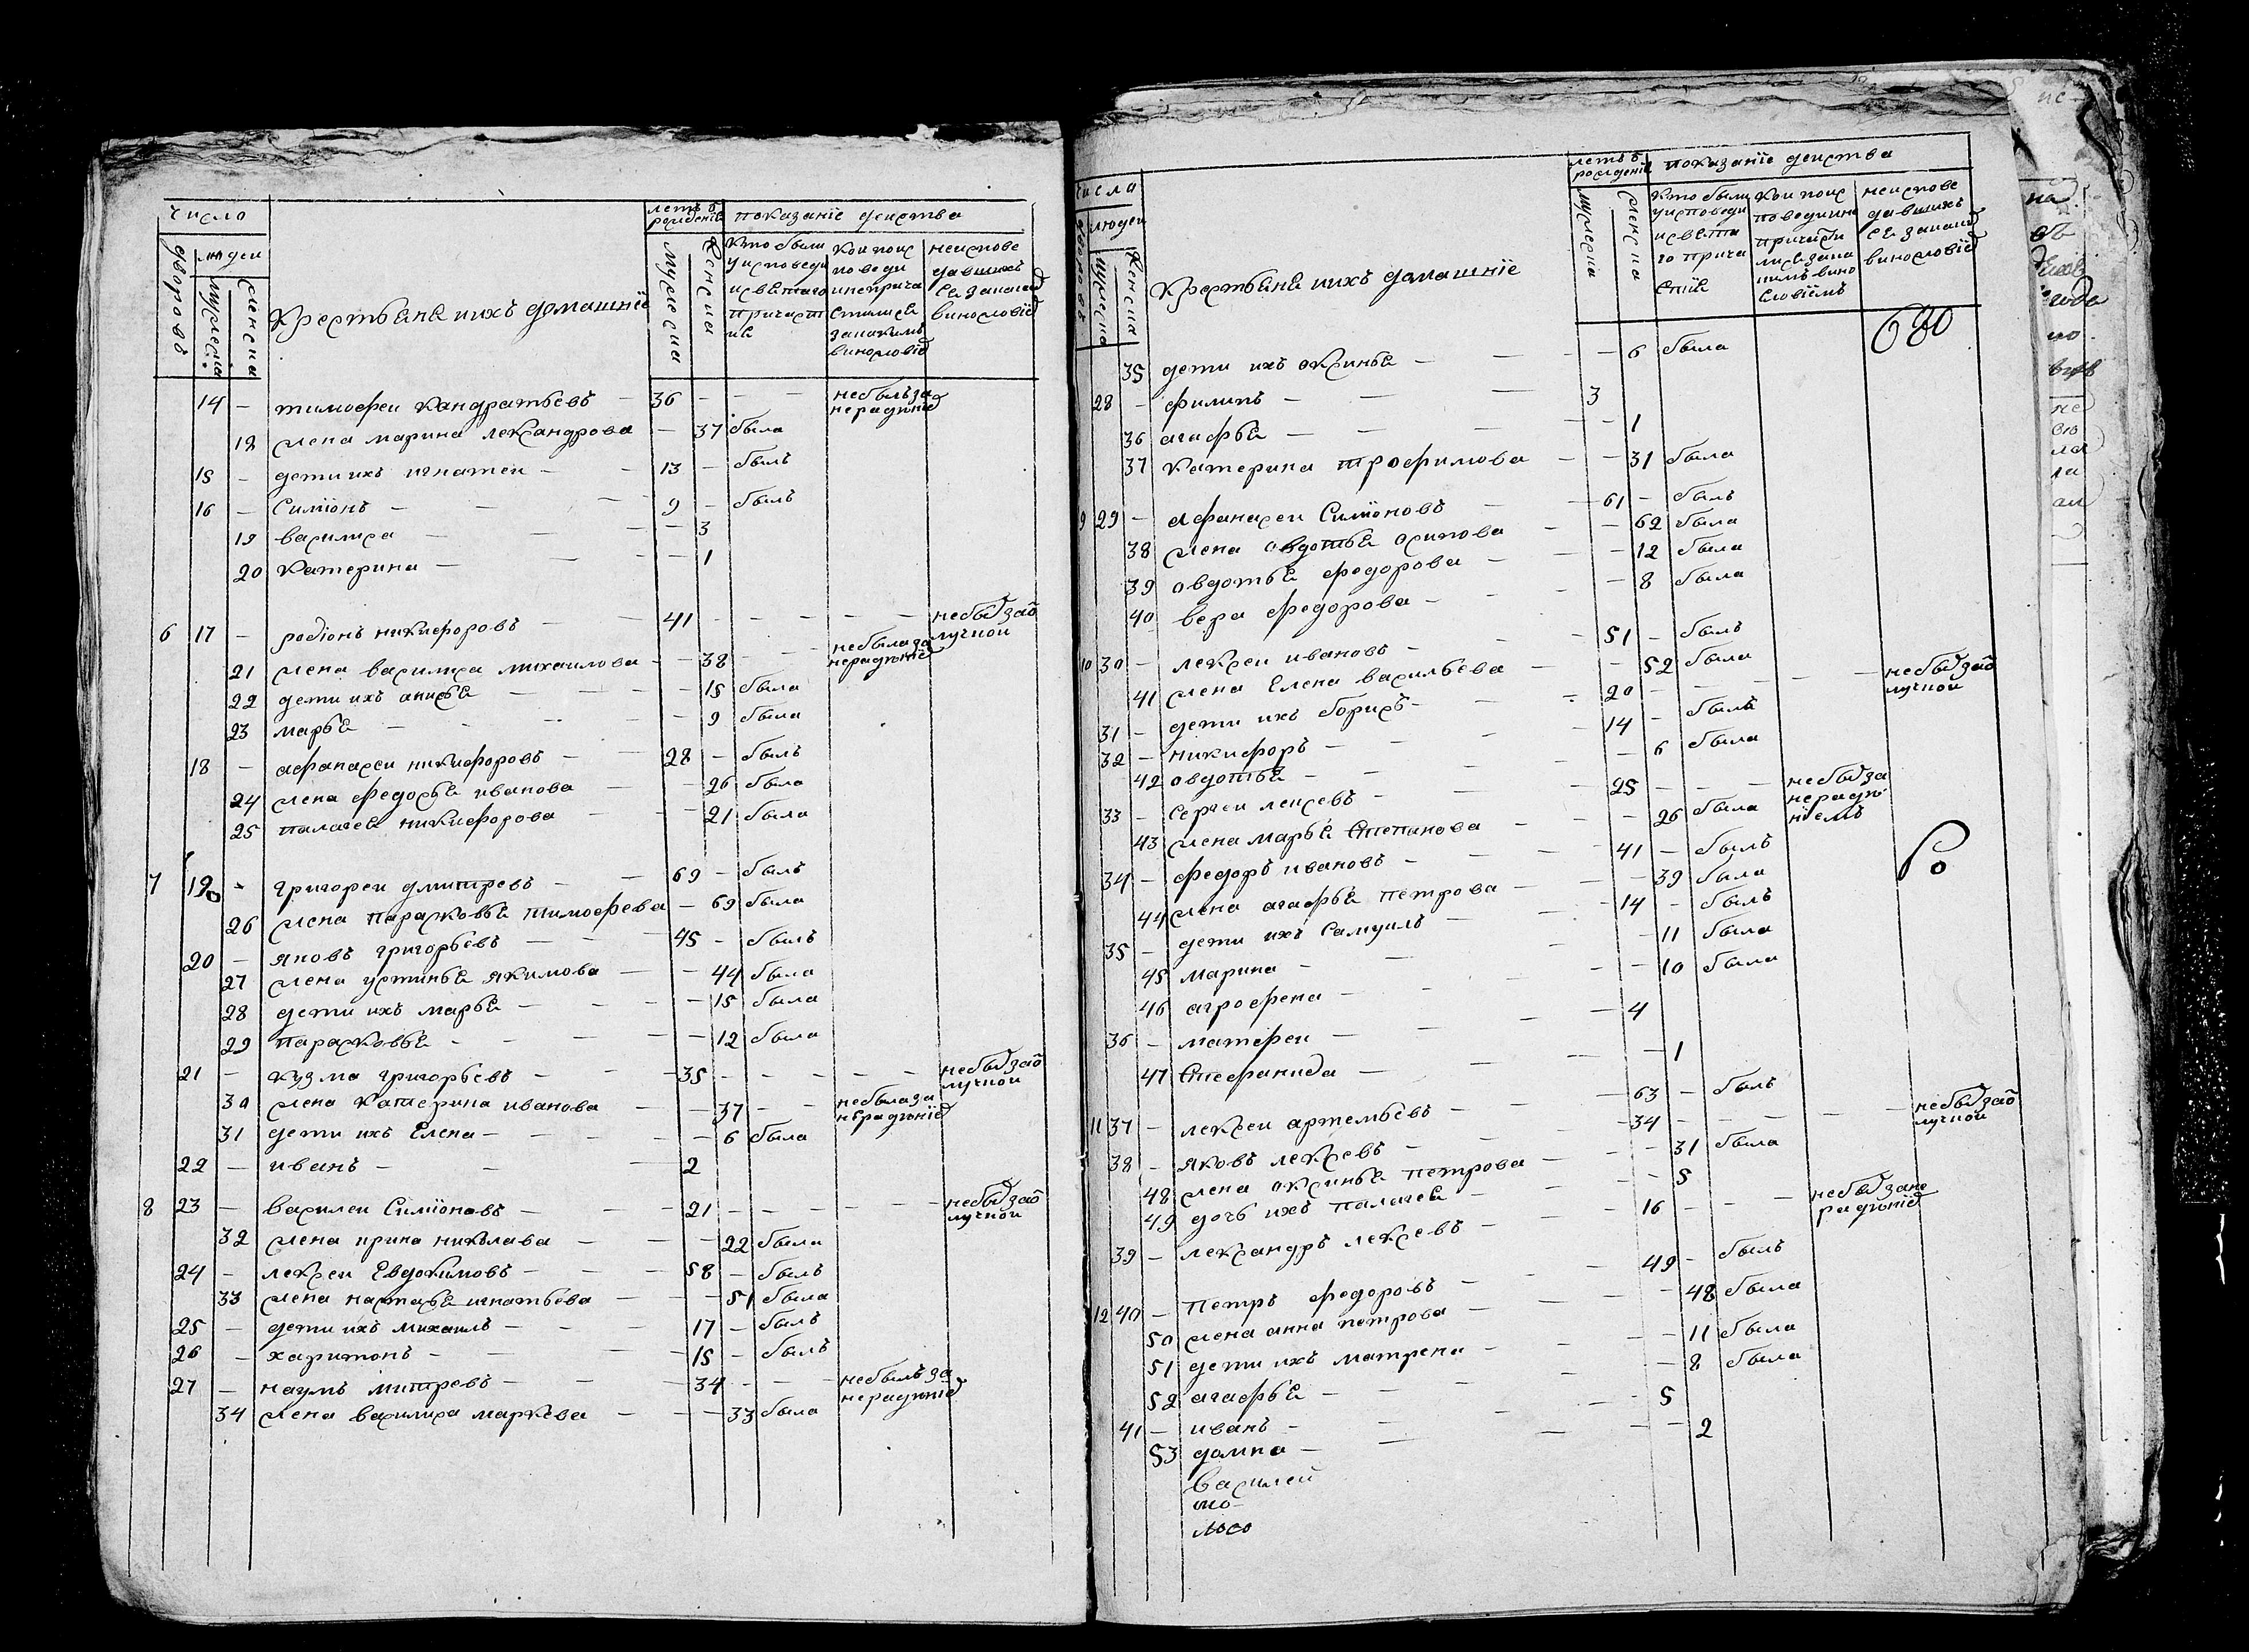 число
летъ ѿ рожденiѣ
показанiе действа
дворовъ
людеи
мужеска
женска
Крестьянѣ иихъ домашнiе
мужеска
женска
кто были уисповеди исвѣтаго причастие
кои поисповеди инепричастилисѣ закакимъ винословiе
неисповедавшихъ сѣ закаким винословiе
14 — тимофеи кандратьевъ — 36 — — — небылъ за нерадѣние
18 жена марина лександрова — 37 была
15 — дети ихъ игнатеи — 13 — былъ
16 — Симiонъ — 9 — былъ
19 василиса — 3
20 катерина — 1
6 17 — родiонъ никифоровъ — 41 — — — — небы заѿлучкои
21 жена василиса михаилова — 38 — — небыла за нерадѣние
22 дети ихъ анисьѣ — 15 была
23 марьѣ — 9 была
18 — афанасеи никифоровъ — 28 — былъ
24 жена федосьѣ иванова — 26 была
25 палагеѣ никифорова — 21 была
7 19 — григореи дмитревъ — 69 — былъ
26 жена парасковьѣ тимофева — 69 была
20 — яковъ григорьевъ — 45 — былъ
27 жена устиньѣ якимова — 44 была
28 дети ихъ марьѣ — 15 была
29 парасковьѣ — 12 была
21 — кузма григорьевъ — 35 — — — — небы заѿлучкои
30 жена катерина иванова — 37 — — небыла за нерадѣние
31 дети ихъ Елена — 6 была
22 — иванъ — 2
8 23 — василеи Симiоновъ — 21 — — — — небы заѿлучкои
32 жена ирина николава — 22 была
24 — лексеи Евдокимовъ — 58 — былъ
33 жена настасьѣ игнатьева — 51 была
25 — дети ихъ михаилъ — 17 — былъ
26 — харитонъ — 15 — былъ
27 — наумъ митревъ — 34 — — небылъ за нерадѣние
34 жена василиса маркева — 33 была
числа
летъ ѿ рожденiѣ
показанiе действа
людеи
мужеска
женска
Крестьянѣ иихъ домашнiе
мужеска
женска
кто были уисповеди исвѣтаго причастiѣ
кои поисповеди ине причастилисѣ закакимъ винословiемъ
неисповедавшихъ сѣ закаким винословiе
35 дети ихъ оксиньѣ — 6 была
28 — филипъ — 3
36 агафьѣ — 1
37 катерина трофимова — 31 была
9 29 — афанасеи Симiоновъ — 61 — былъ
38 жена овдотьѣ осипова — 62 была
39 овдотьѣ федорова — 12 была
40 вера федорова — 8 была
10 30 — лексеи ивановъ — 51 — былъ
41 жена Елена васильева — 52 была
31 — дети ихъ борисъ — 20 — — — — небы заѿлучкои
32 — никифоръ — 14 — былъ
42 овдотьѣ — 6 была
33 — Сергеи лексевъ — 25 — — небы за нерадѣниемъ
43 жена марьѣ Степанова — 26 была
34 — федоръ ивановъ — 41 — былъ
44 жена агафьѣ петрова — 39 была
35 — дети ихъ Самуилъ — 14 — былъ
45 марина — 11 была
46 агрофена — 10 была
36 — матфеи — 4
47 Стефанида — 1
11 37 — лексеи артемьевъ — 63 — былъ
38 — яковъ лексевъ — 34 — — — — небы заѿлучкои
48 жена оксиньѣ петрова — 31 была
49 дочь ихъ палагеѣ — 5
39 — лександръ лексевъ — 16 — — небы занерадѣние
12 40 — петръ федоровъ — 49 — былъ
50 жена анна петрова — 48 была
51 дети ихъ матрена — 11 была
52 агафьѣ — 8 была
41 — иванъ — 5
53 домна — 2
василей